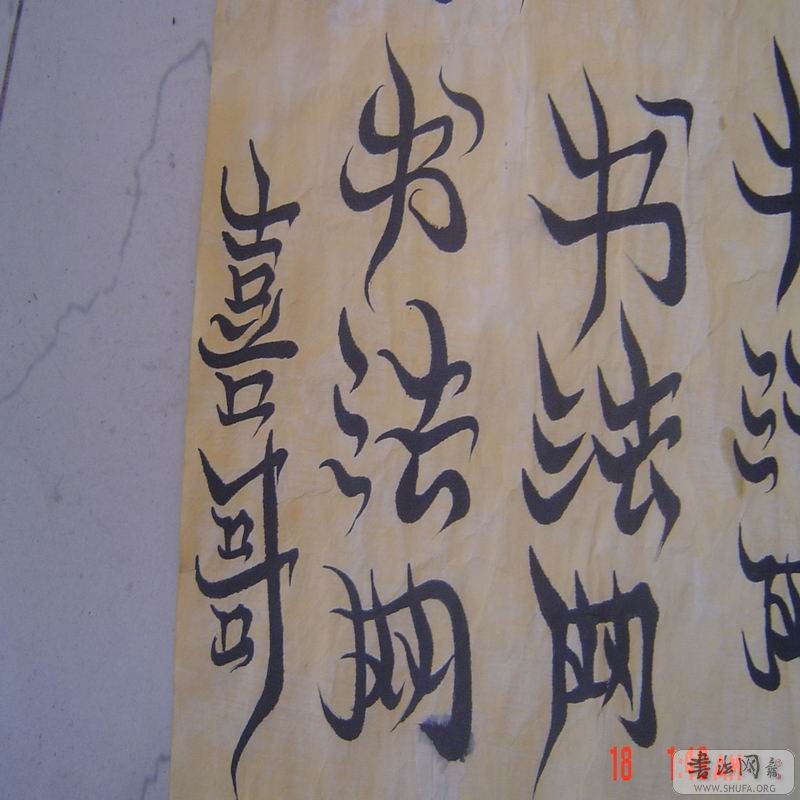 书法网
书法网
喜哥
18
書法网
WWW.SHUFA.ORG